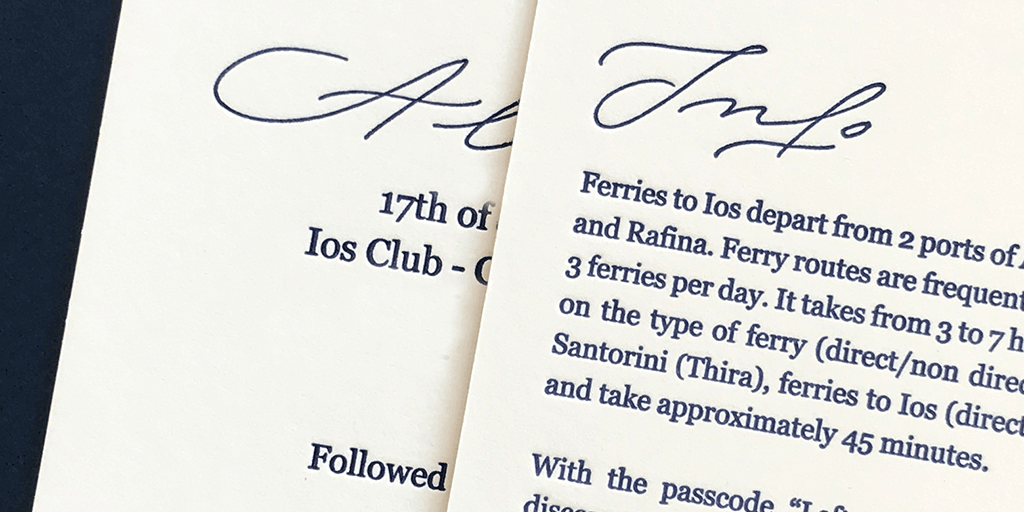 17th of
Ios Club -
Followed
Info
Ferries to Ios depart from 2 ports of
and Rafina. Ferry routes are frequent
3 ferries per day. It takes from 3 to 7 h
on the type of ferry (direct/non direc
Santorini (Thira), ferries to Ios (direct
and take approximately 45 minutes.
With the passcode